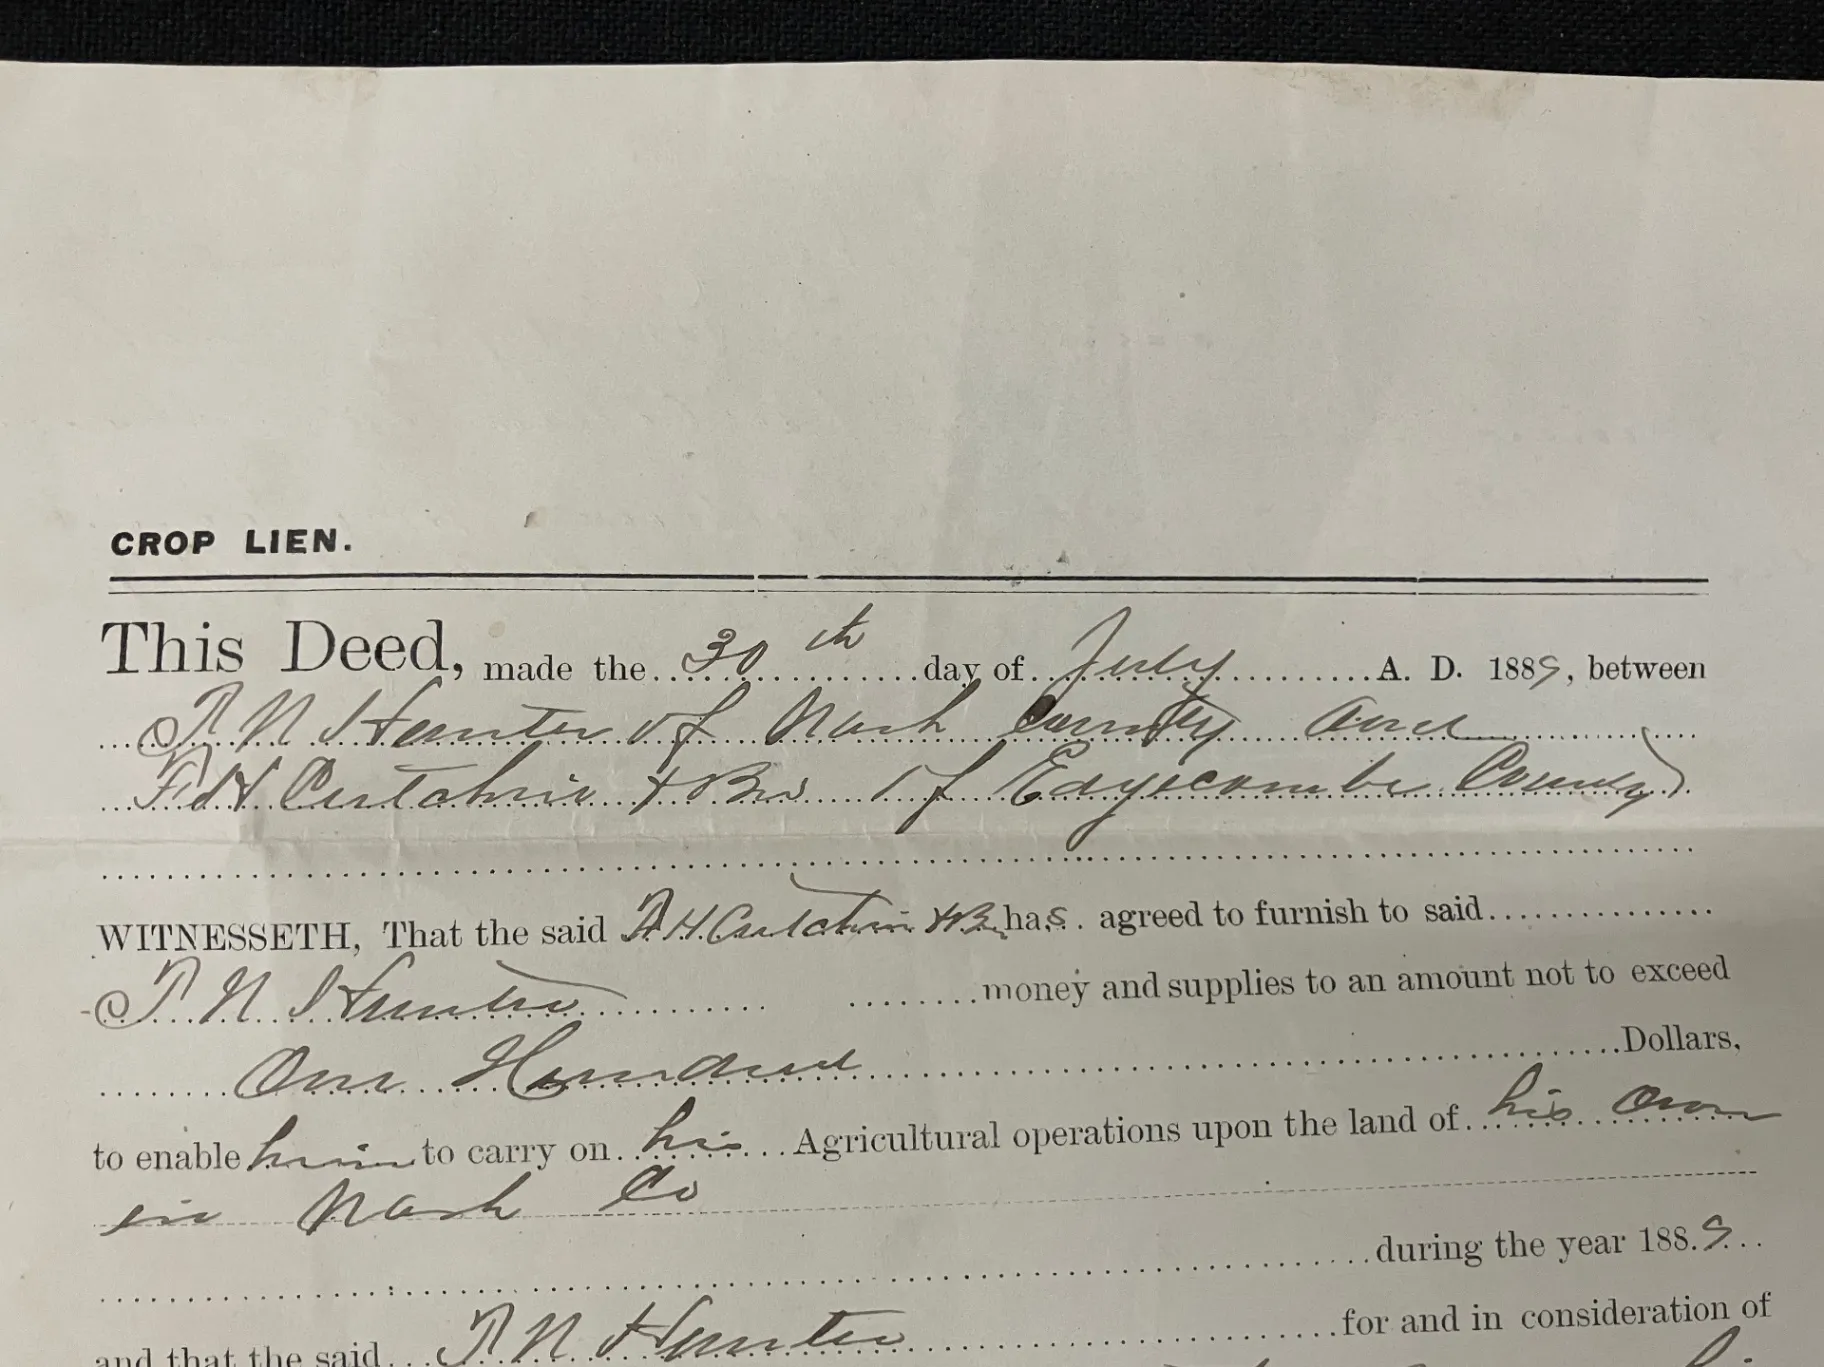 CROP LIEN.
This Deed, made the 30th day of July A. D. 1889, between
T. N. Hunter of Nash County and
T. H. Cutchin & Bro of Edgecombe County
WITNESSETH, That the said T. H. Cutchin & Bro has agreed to furnish to said
T. N. Hunter money and supplies to an amount not to exceed
One Hundred Dollars,
to enable him to carry on his Agricultural operations upon the land of his own
in Nash Co
during the year 1889
and that the said T. N. Hunter for and in consideration of